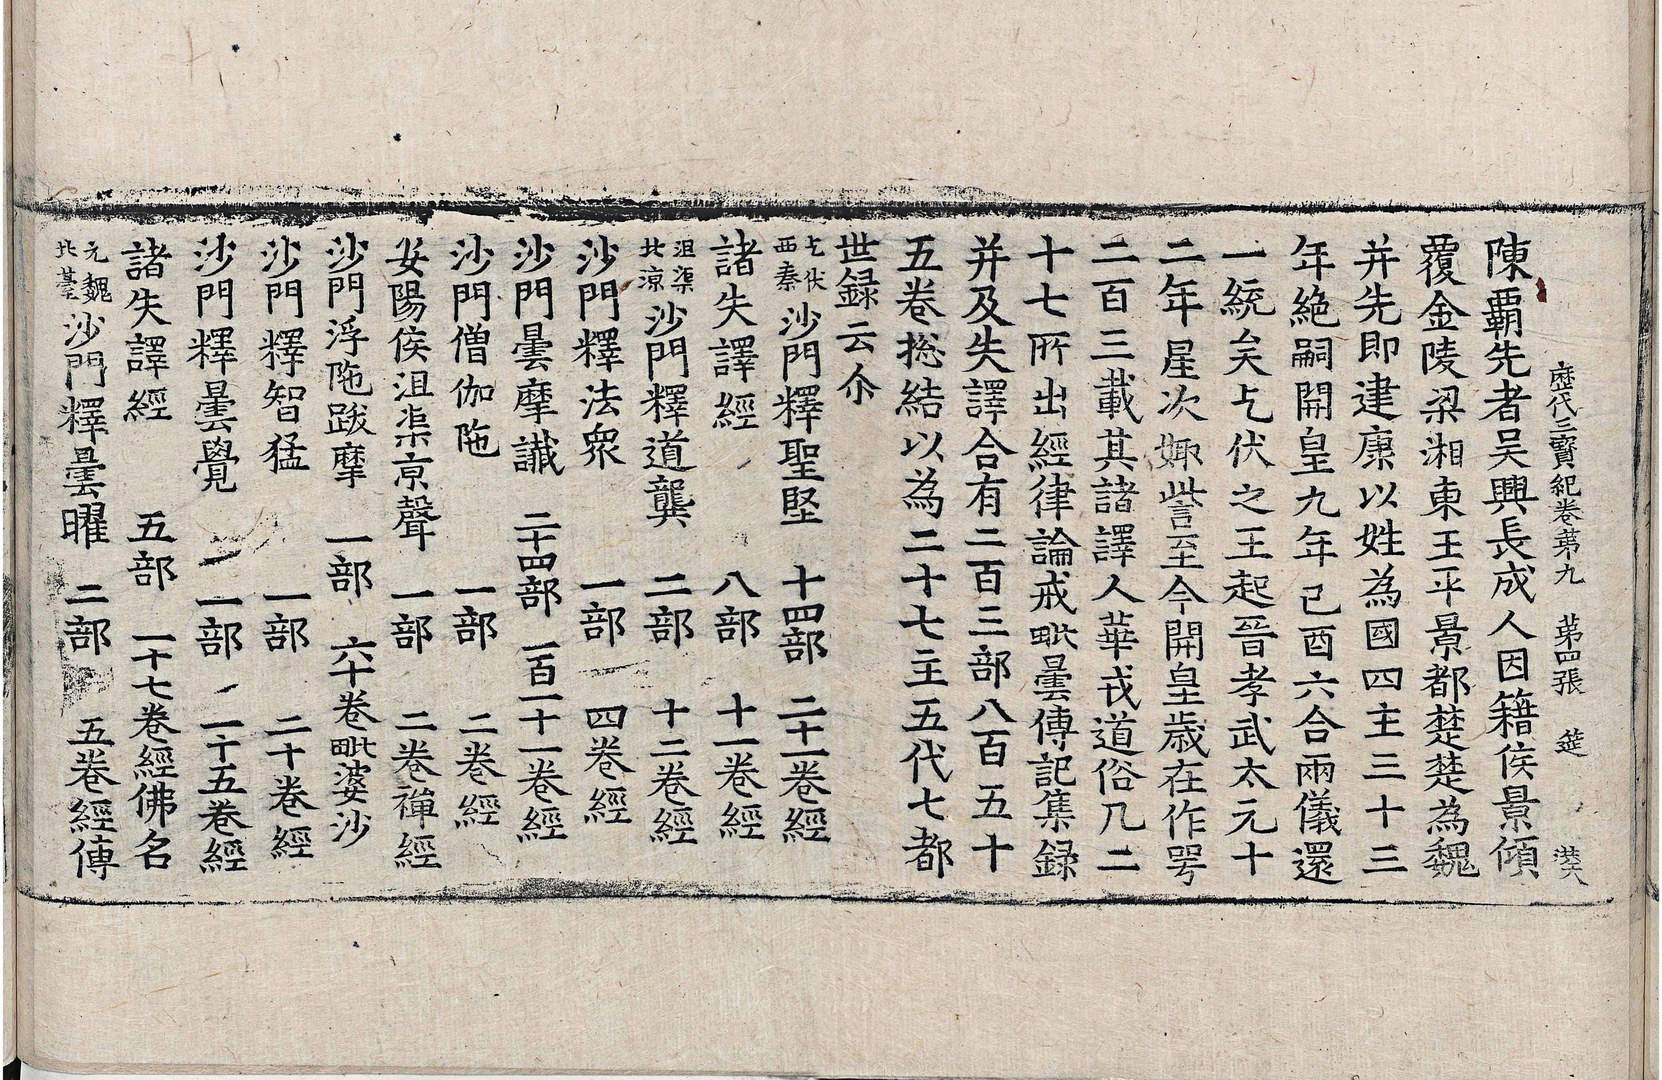 歷代三寶紀卷第九　第四張　筵
陳霸先者吳興長成人因籍侯景傾
覆金陵梁湘東王平景都楚楚為魏
并先即建康以姓為國四主三十三
年絕嗣開皇九年己酉六合兩儀還
一統矣乞伏之王起晉孝武太元十
二年星次娵訾至今開皇歲在作咢
二百三載其諸譯人華戎道俗凡二
十七所出經律論戒毗曇傳記集錄
并及失譯合有二百三部八百五十
五卷揔結以為二十七主五代七都
世錄云尒
乞伏西秦沙門釋聖堅　十四部　二十一卷經
諸失譯經　八部　十一卷經
沮渠北涼沙門釋道龔　二部　十二卷經
沙門釋法衆　一部　四卷經
沙門曇摩讖　二十四部　一百二十一卷經
沙門僧伽陁　一部　二卷經
安陽侯沮渠京聲　一部　二卷禪經
沙門浮陁跋摩　一部　六十卷毗婆沙
沙門釋智猛　一部　二十卷經
沙門釋曇覺　一部　一十五卷經
諸失譯經　五部　一十七卷經佛名
元魏北臺沙門釋曇曜　二部　五卷經傳